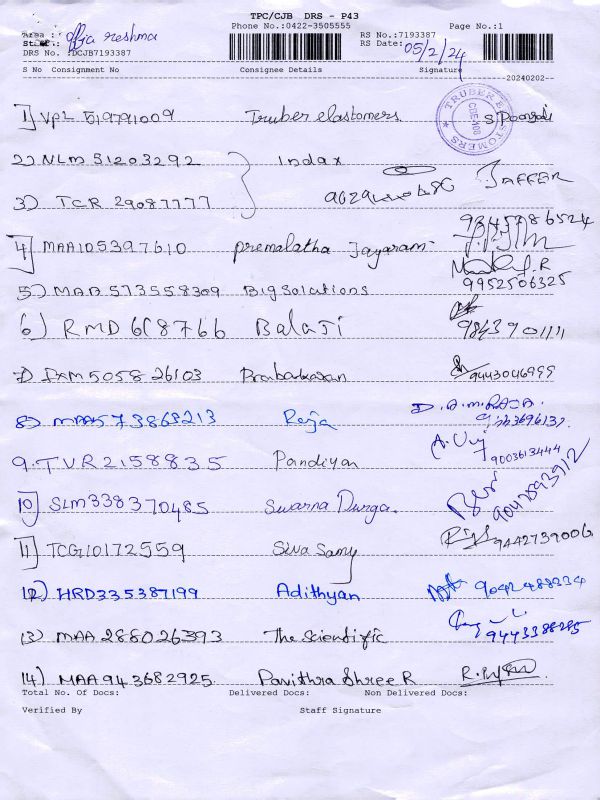 TPC/CJB DRS - P43
Phone No.:0422-3505555 Page No.:1
Area : offja reshma RS No.:7193387
RS Date: 05/2/24
DRS No. :DCJB7193387
S No Consignment No Consignee Details Signature
20240202--
1) VPL 519791009 Truber elastomers. S.Poongodi
TRUBER ELASTOMERS
2) NLM 51203292 Indax JAFFER
3) TCR 29087777
9345786524
4) MAA105397610 Premalatha Jayaram
5) MAA 573558309 Bigsolations 9952506325
6) RMD 668766 Balaji 9843901111
7) IXM505826103 Prabakaran 9443046999
8) MAA573863213 Raja D.A.M.RAJA.
9. TVR2158835 Pandiyan 9003613444
10) SLM338370485 Swarna Durga. 9047893912
11) TCG10172559 Siva Samy 9442739006
12) HRD335387199 Adithyan 9042488234
13) MAA 288026393 The Scientific 9443388285
14) MAA 943682925 Pavithra Shree R
Total No. Of Docs: Delivered Docs: Non Delivered Docs:
Verified By Staff Signature